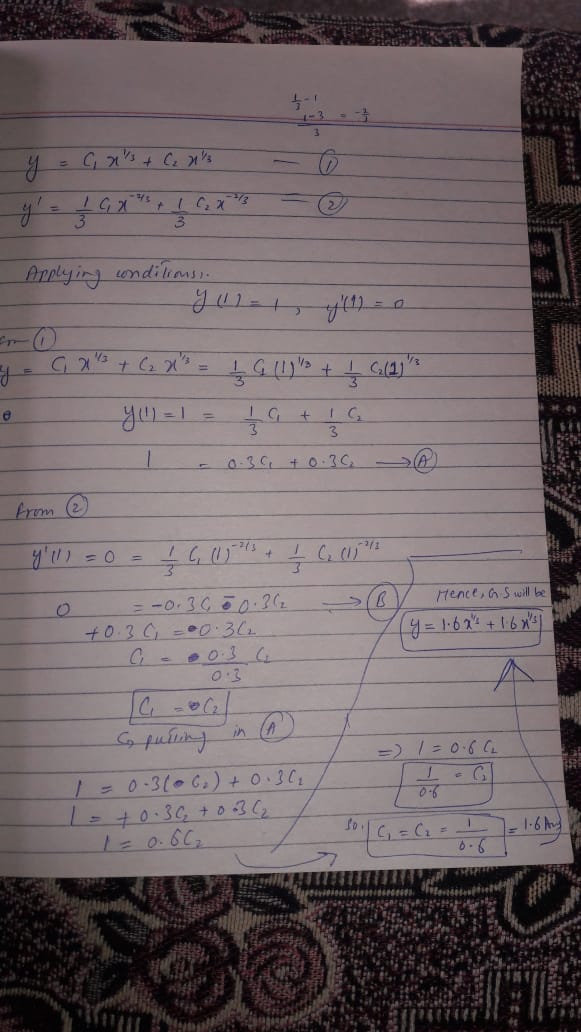 1/3 - 1
(1-3)/3 = -2/3
y = C₁ x^1/3 + C₂ x^1/3 — ①
y' = 1/3 C₁ x^-2/3 + 1/3 C₂ x^-2/3 = ②
Applying conditions:.
y(1) = 1, y'(1) = 0
①
y = C₁ x^1/3 + C₂ x^1/3 = 1/3 C₁ (1)^1/3 + 1/3 C₂(1)^1/3
y(1) = 1 = 1/3 C₁ + 1/3 C₂
1 = 0.3C₁ + 0.3C₂ → Ⓐ
from ②
y'(1) = 0 = 1/3 C₁ (1)^-2/3 + 1/3 C₂ (1)^-2/3
0 = -0.3C₁ 0.3C₂ → Ⓑ
+0.3 C₁ = 0.3C₂
C₁ = 0.3/0.3 C₂
C₁ = C₂
C₁ putting in Ⓐ
1 = 0.3( C₂) + 0.3C₂
1 = +0.3C₂ + 0.3C₂
1 = 0.6C₂
=> 1 = 0.6 C₂
1/0.6 = C₂
So, C₁ = C₂ = 1/0.6 = 1.6 Ans
Hence, G.S will be
y = 1.6x^1/3 + 1.6x^1/3